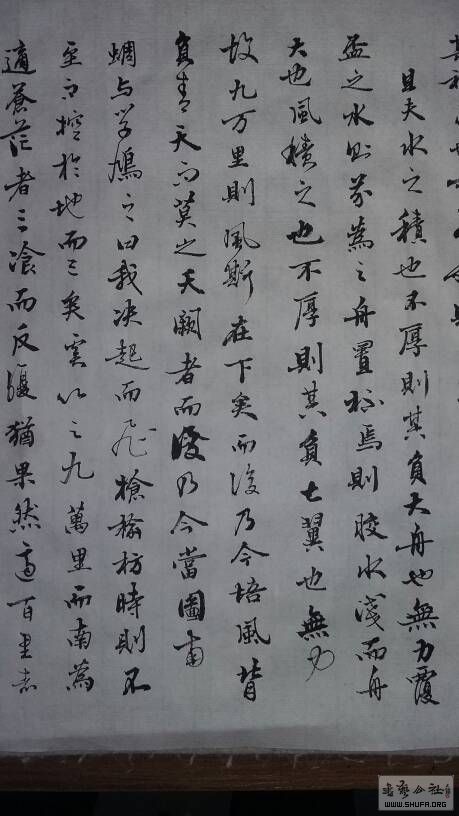 且夫水之積也不厚則其負大舟也無力覆
盃之水則芥為之舟置杯焉則膠水淺而舟
大也風積之也不厚則其負大翼也無力
故九万里則風斯在下矣而後乃今培風背
負青天而莫之夭閼者而後乃今當圖南
蜩与学鳩之曰我决起而飛槍榆枋時則不
至而控於地而已矣奚以之九萬里而南為
適蒼茫者三飡而反腹猶果然適百里者
书法公社
WWW.SHUFA.ORG